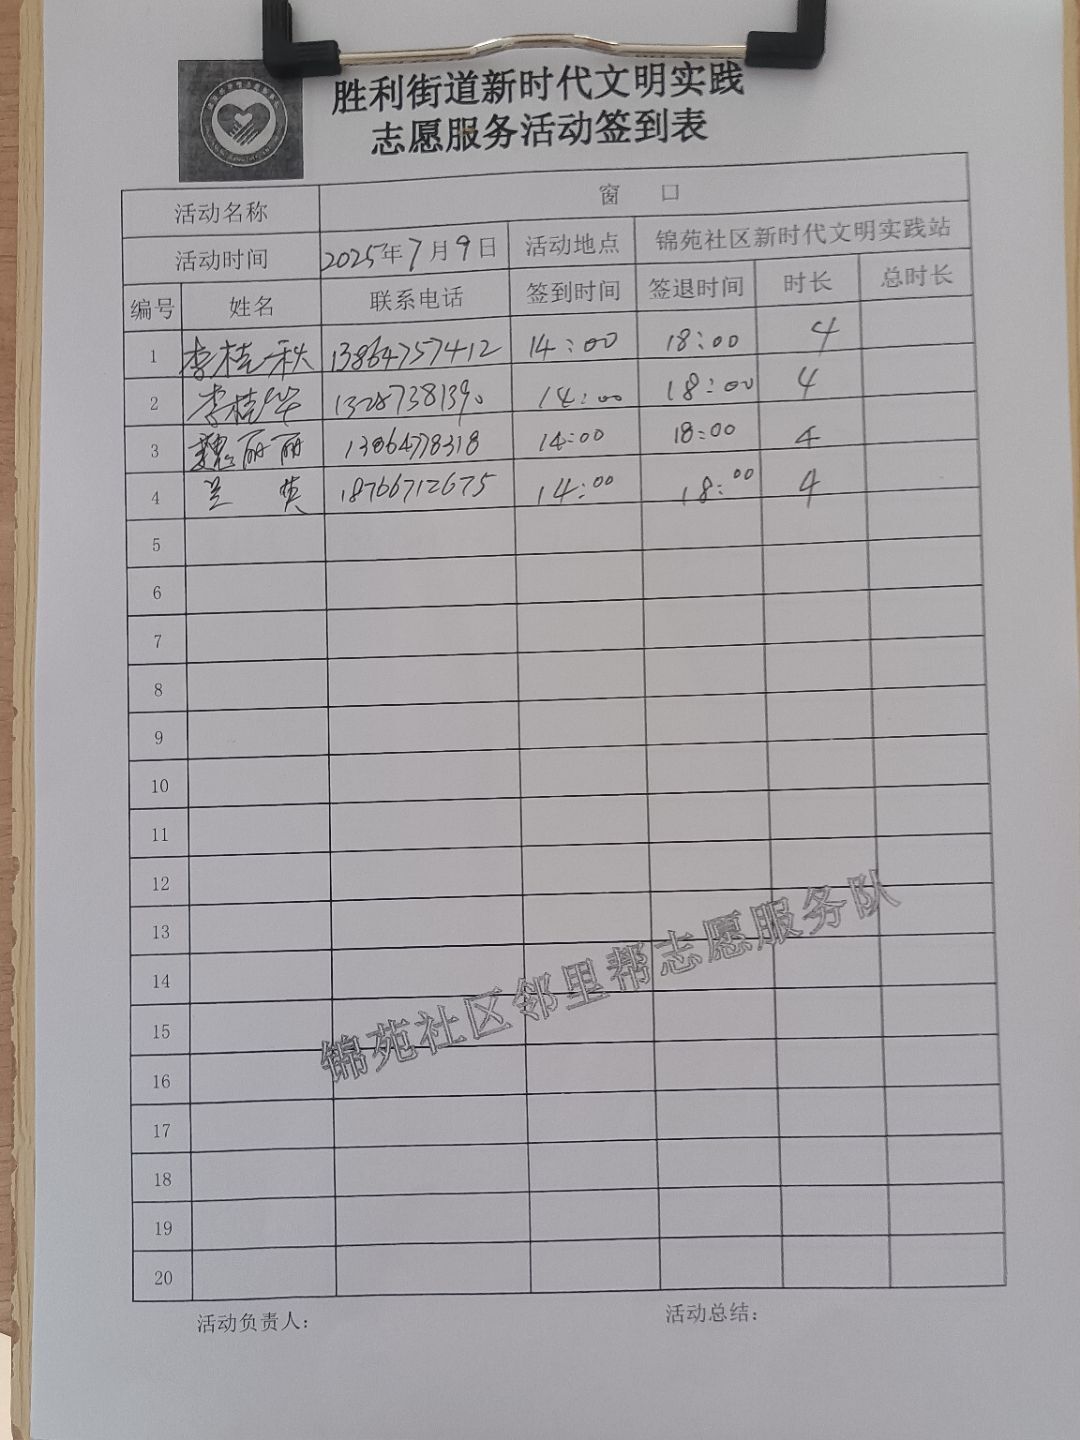 胜利街道新时代文明实践
志愿服务活动签到表
活动名称 窗 口
活动时间 2025年7月9日 活动地点 锦苑社区新时代文明实践站
编号 姓名 联系电话 签到时间 签退时间 时长 总时长
1 李桂秋 13864757412 14:00 18:00 4
2 李桂华 13287381390 14:00 18:00 4
3 魏丽丽 13864778318 14:00 18:00 4
4 兰英 18766712675 14:00 18:00 4
5
6
7
8
9
10
11
12
13
14
15
16
17
18
19
20
锦苑社区邻里帮志愿服务队
活动负责人: 活动总结: